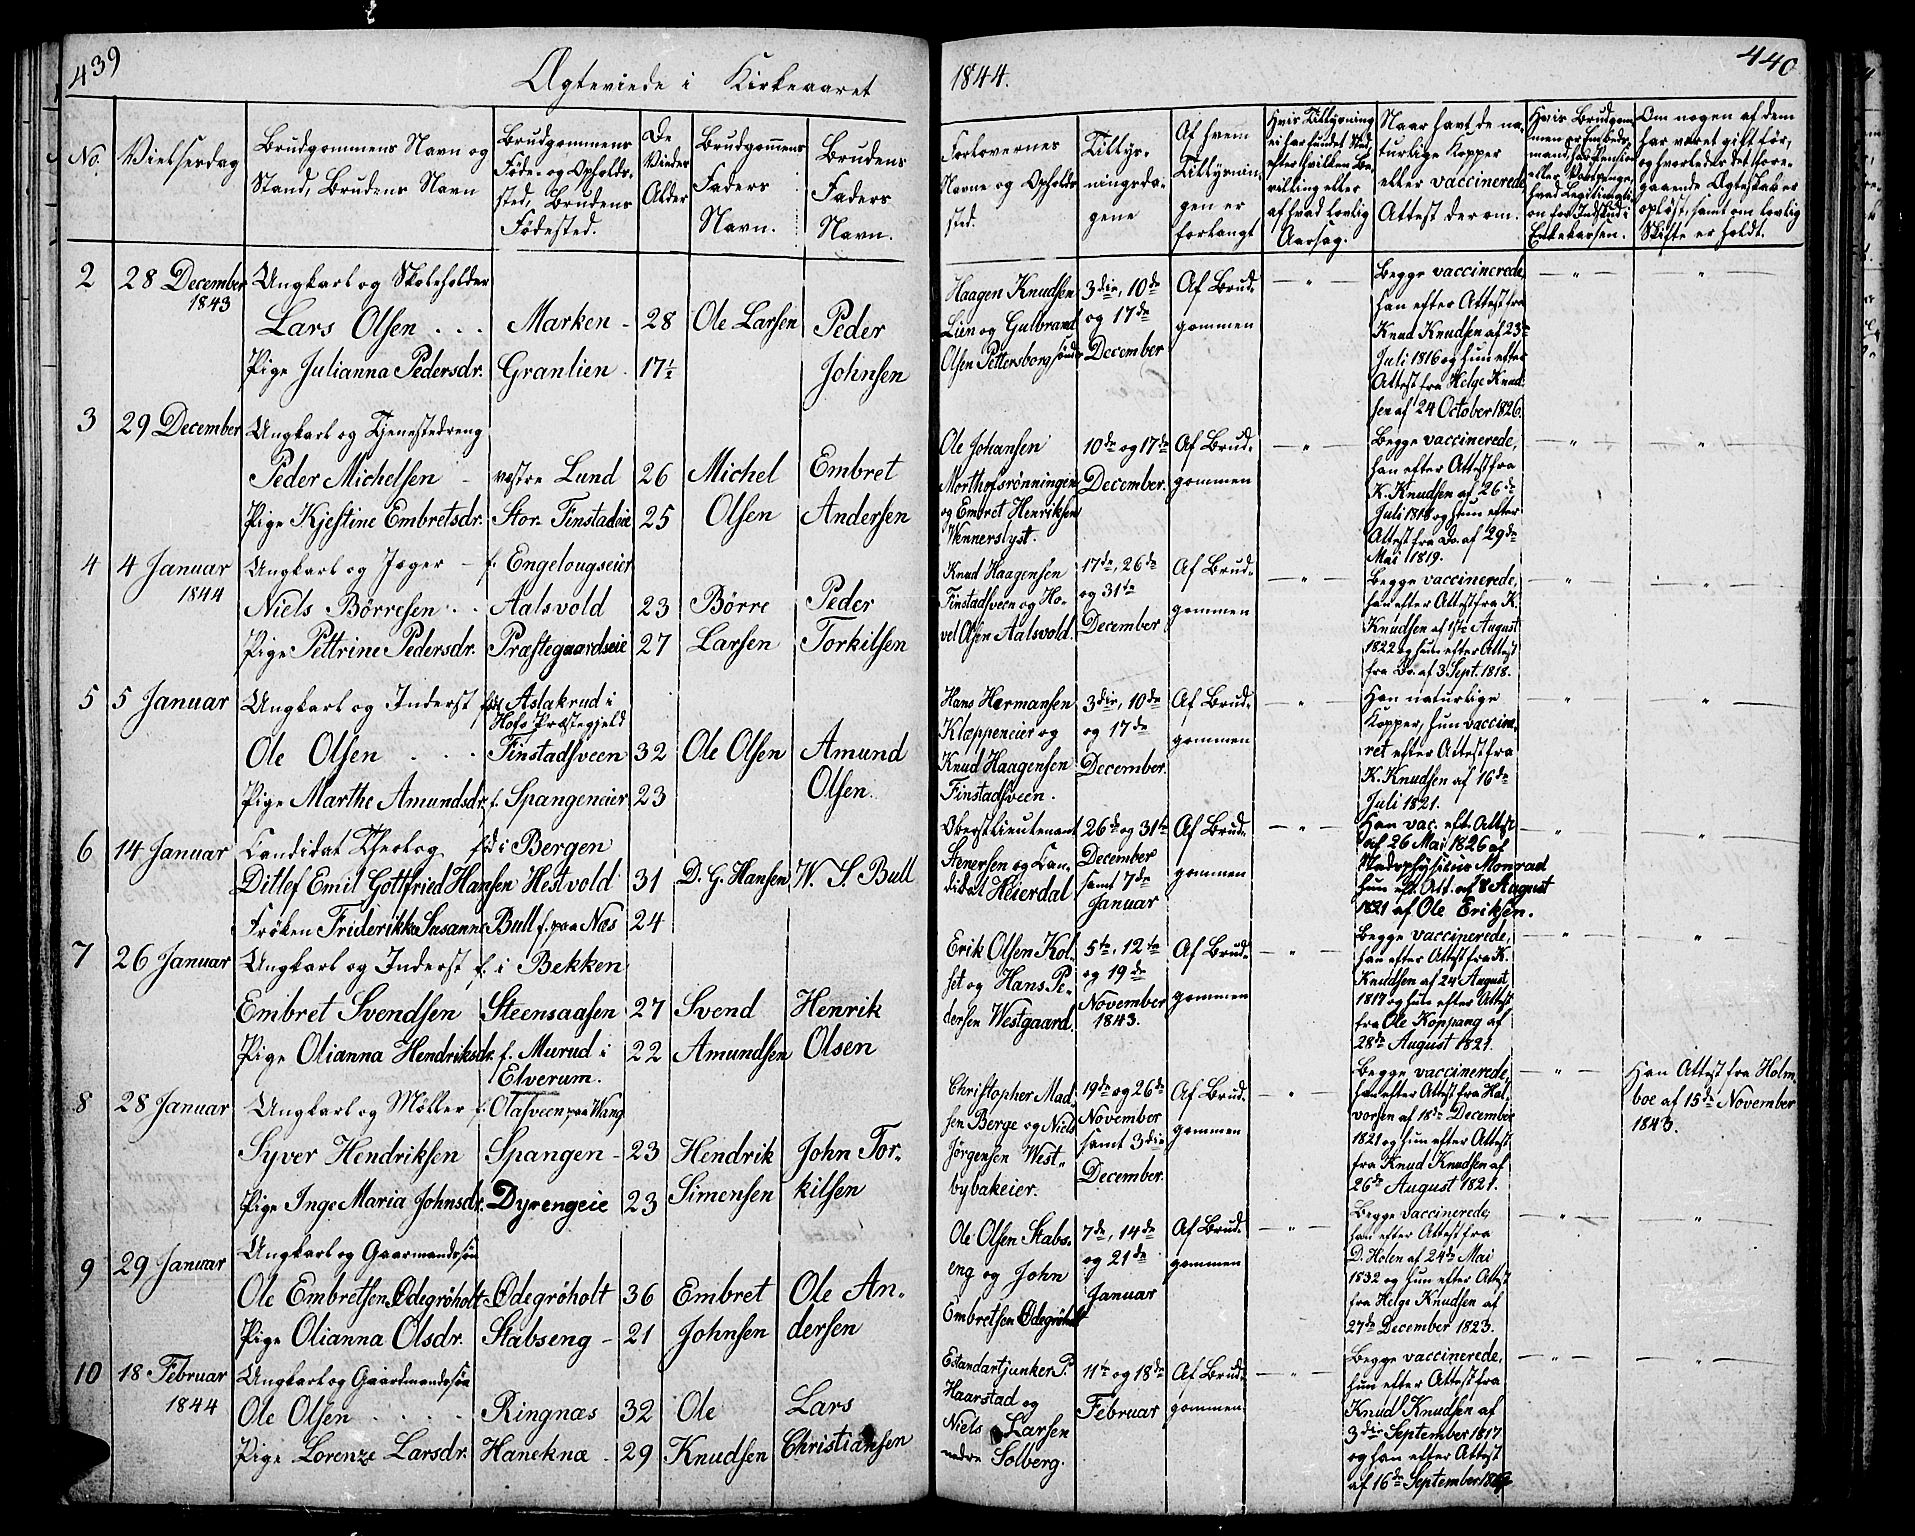 439
Ægteviede i Kirkeaaret
1844.
440
No.
Vielsesdag
Brudgommens Navn og
Stand, Brudens Navn
Brudgommens
Føde- og Opholds-
sted, Brudens
Fødested.
De
Viedes
Alder
Brudgommens
Faders
Navn.
Brudens
Faders
Navn.
Forlovernes
Navne og Opholds
sted.
Tillys-
ningsda-
gene
Af hvem
Tillysnin-
gen er
forlangt
Hvis Tillysning
ei har fundet Sted,
efter hvilken Be-
villing eller
af hvad lovlig
Aarsag.
Naar havt de na-
turlige Kopper
eller vaccinerede,
Attest derom.
Hvis Brudgom-
men er Embeds-
mand, har Pension
eller Vartpenge,
hvad Legitimati-
on for Indskud i
Enkekassen.
Om nogen af dem
har været gift før,
og hvorledes det fore-
gaaende Ægteskab er
opløst, samt om lovlig
Skifte er holdt.
2
28 December
1843
Ungkarl og Skoleholder
Lars Olsen . . .
Pige Julianna Pedersdr.
Marken -
Granlien -
28
17½
Ole Larsen
Peder
Johnsen
Haagen Knudsen
Lien og Gulbrand
Olsen Pettersborg søndre
3die, 10de
og 17de
December
Af Brud-
gommen
Begge vaccinerede,
han efter Attest fra
Knud Knudsen af 23de
Juli 1816 og hun efter
Attest fra Helge Knud-
sen af 24 October 1826.
3
29 December
Ungkarl og Tjenestedreng
Peder Michelsen -
Pige Kjestine Embretsdr.
vestre Lund
Stor. Finstadeie
26
25
Michel
Olsen
Embret
Andersen
Ole Johansen
Morthofsrønningen
og Embret Henriksen
Wennerslyst.
10de og 17de
December.
Af Brud-
gommen
Begge vaccinerede,
han efter Attest fra
K. Knudsen af 26de
Juli 1818 og hun efter
Attest fra Do. af 29de
Mai 1819.
4
4 Januar
1844
Ungkarl og Jæger -
Niels Börresen . .
Pige Pettrine Pedersdr.
f. Engelougseier
Aalsvold
Præstegaardseie
23
27
Börre
Larsen
Peder
Torkilsen
Knud Haagensen
Finstadsveen og Ho-
vel Olsen Aalsvold.
17de, 26de
og 31te
December
Af Brud-
gommen
Begge vaccinerede,
han efter Attest fra K.
Knudsen af 1ste August
1822 og hun efter Attest
fra Do. af 3 Sept. 1818.
5
5 Januar
Ungkarl og Inderst
Ole Olsen . . .
Pige Marthe Amundsdr.
fød Aslakrud i
Hofs Præstegjeld
Finstadsveen
f. Spangeneier
32
23
Ole Olsen
Amund
Olsen.
Hans Hermansen
Kloppeneier og
Knud Haagensen
Finstadsveen.
3die, 10de
og 17de
December.
Af Brud-
gommen
Han naturlige
Kopper, hun vaccine-
ret efter Attest fra
K. Knudsen af 16de
Juli 1821.
6
14 Januar
Candidat Theolog
Ditlef Emil Gottfried Hansen
Frøken Friderikke Susanne Bull
fød i Bergen
Hestvold
f. paa Næs
31
24
D. G. Hansen
W. S. Bull
Oberstlieutenant
Stenersen og Can-
didat Heierdal
26de og 31te
December
samt 7de
Januar
Af Brud-
gommen
Han vac. eft. Attest
af 26 Mai 1826 af
Stadsphysicus Monrad
hun eft. Att. af 8 August
1821 af Ole Eriksen.
7
26 Januar
Ungkarl og Inderst
Embret Svendsen
Pige Olianna Hendriksdr.
f. i Bekken
Steensaasen
f. Murud i
Elverum.
27
22
Svend
Amundsen
Henrik
Olsen
Erik Olsen Kol-
set og Hans Pe-
dersen Westgaard.
5te, 12te
og 19de
November
1843.
Af Brud-
gommen
Begge vaccinerede,
han efter Attest fra K.
Knudsen af 24 August
1817 og hun efter Attest
fra Ole Koppang af
28de August 1821.
8
28 Januar
Ungkarl og Møller
Syver Hendriksen
Pige Inge Maria Johnsdr.
f. Olafsveen paa Wang
Spangen -
Dyrengeie
23
23
Hendrik
Simensen
John Tor-
kilsen
Christopher Mad-
sen Berge og Niels
Jörgensen West-
bybakeier.
19de og 26de
November
samt 3die
December.
Af Brud-
gommen
Begge vaccinerede,
han efter Attest fra Hal-
vorsen af 18de December
1821 og hun efter Attest
fra Knud Knudsen af
26de August 1821.
Han Attest fra Holm-
boe af 15de November
1843.
9
29 Januar
Ungkarl og Gaarmandssøn
Ole Embretsen Ødegröholt
Pige Olianna Olsdr.
Ødegröholt
Stabseng -
36
21
Embret
Johnsen
Ole An-
dersen
Ole Olsen Stabs-
eng og John
Embretsen Ødegröholt
7de, 14de
og 21de
Januar
Af Brud-
gommen
Begge vaccinerede,
han efter Attest fra
D. Holen af 24de Mai
1832 og hun efter Attest
fra Helge Knudsen af
27de December 1823.
10
18 Februar
1844
Ungkarl og Gaardmandssøn
Ole Olsen . . . .
Pige Lorenze Larsdr.
Ringnæs
Haneknæ -
32
29
Ole
Knudsen
Lars
Christiansen
Estandartjunker P.
Haarstad og
Niels Larsen
nedre Solberg.
11te og 18de
Februar
Af Brud-
gommen
Begge vaccinerede,
hun efter Attest fra
Knud Knudsen af
3die September 1817
og han efter Attest
af 16de September